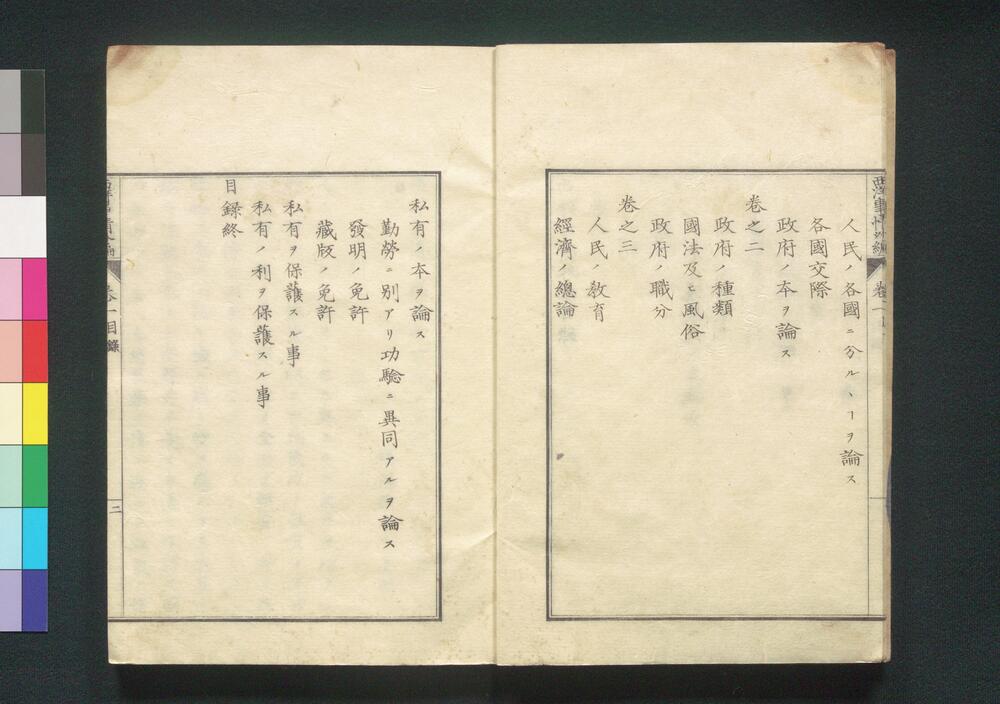 人民ノ各國ニ分ルヽヿヲ論ス
各國交際
政府ノ本ヲ論ス
卷之二
政府ノ種類
國法及ヒ風俗
政府ノ職分
卷之三
人民ノ敎育
經濟ノ總論
私有ノ本ヲ論ス
勤勞ニ別アリ功驗ニ異同アルヲ論ス
發明ノ免許
藏版ノ免許
私有ヲ保護スル事
私有ノ利ヲ保護スル事
目錄終
卷一目錄
二